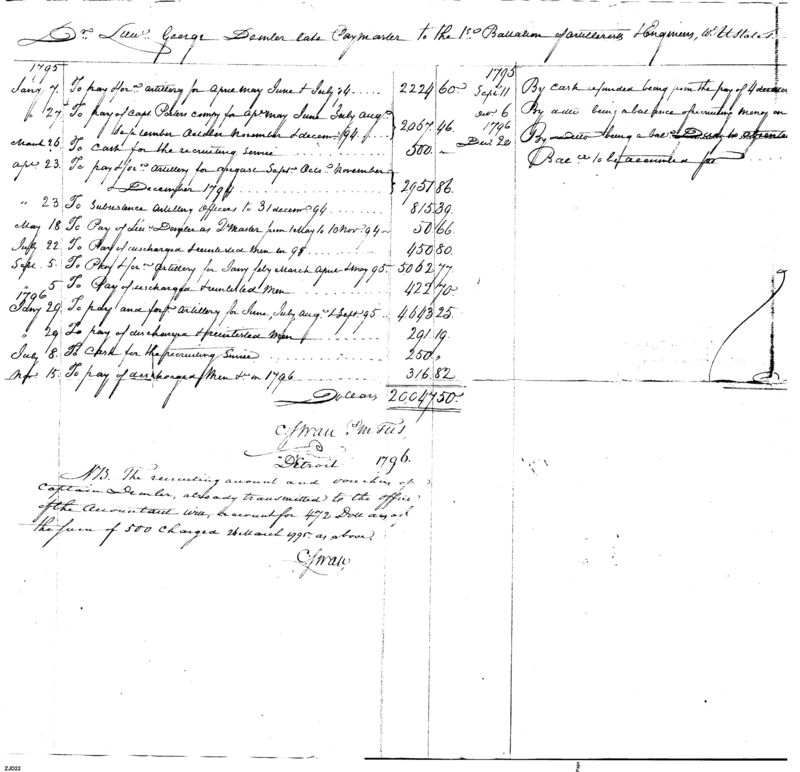 Dr. Lieut. George Demler late Paymaster to the 1st Battalion of Artillerists & Engineers, U States
1795
Jany 7. To pay & for. artillery for April May June & July 94 2224 60
" 27 To pay of capt Peters compy for Apr May June July augt
September October November & decem 94 2067.46
March 26 To Cash for the recruiting service 500. -
apr. 23. To pay & for. Artillery for august Sept. Octo. November
& December 1794 2957 86.
" 23 To Subsistance Artillery Officers to 31 decem 94 815 39.
May 18 To Pay of Lieu. Demler as Q Master from 1 May to 10 Nov. 94 50 66.
July 22 To Pay of discharged & reinlisted Men in 450 80.
Sept. 5. To Pay & for. artillery for Jany feby March April & May 95 5062 77.
" 5 To Pay of discharged & reinlisted Men 422 70.
1796
Jany 29. To pay and for. Artillery for June, July aug. & Sept. 95 4643 25.
" 29 To pay of discharged & reinlisted Men 291.19.
July 8. To Cash for the recruiting Service 250 "
Nov. 15. To pay of discharged Men &c in 1796 316.82
Dollars 20047 50.
1795
Sept. 11 By cash refunded being from the pay of 4
Nov. 6 By ditto being a balance of recruiting money on
1796
Dec. 20 By Ditto being a bal
Balce to be accounted for
C Swan P M T U S,
Detroit 1796.
NB. The recruiting account and vouchers of
Captain Demler, already transmitted to the office
of the Accountant will, account for 472 Dollars of
the sum of 500 Charged 26 March 1795 as above.
C Swan,
ZJD22